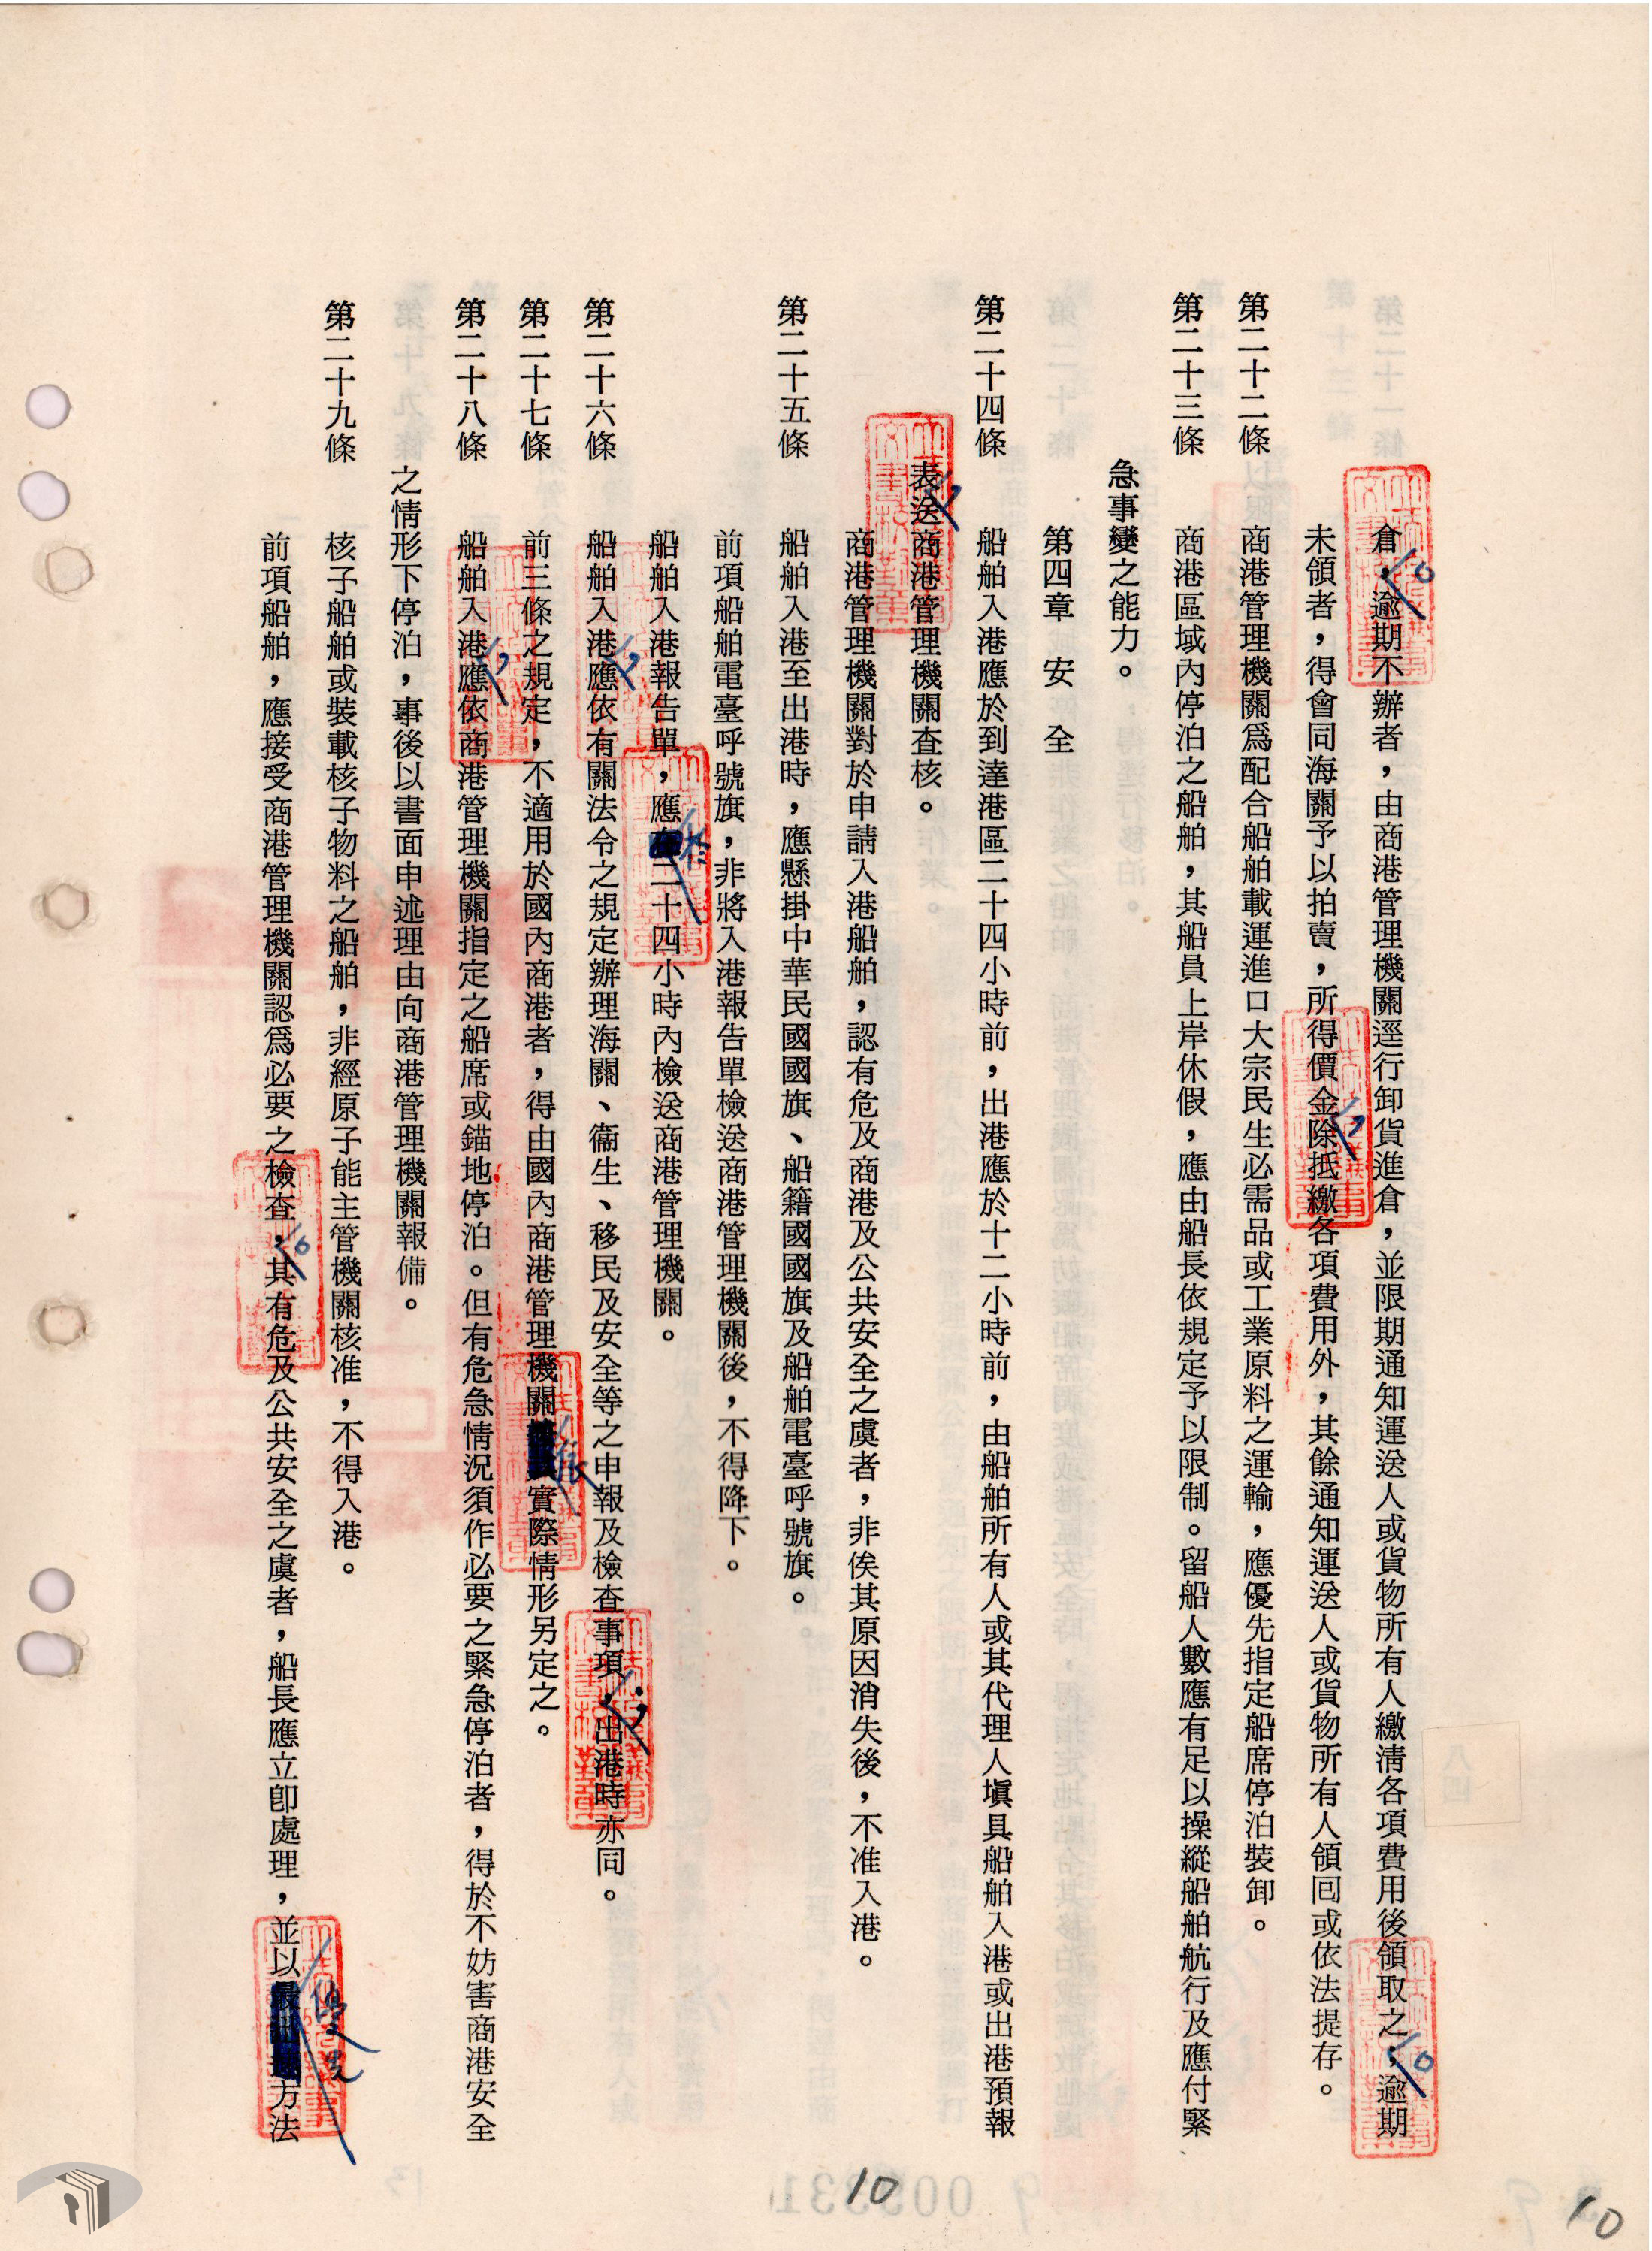 倉，逾期不辦者，由商港管理機關逕行卸貨進倉，並限期通知運送人或貨物所有人繳清各項費用後領取之，逾期
未領者，得會同海關予以拍賣，所得價金除抵繳各項費用外，其餘通知運送人或貨物所有人領回或依法提存。
第二十二條　商港管理機關爲配合船舶載運進口大宗民生必需品或工業原料之運輸，應優先指定船席停泊裝卸。
第二十三條　商港區域內停泊之船舶，其船員上岸休假，應由船長依規定予以限制。留船人數應有足以操縱船舶航行及應付緊
急事變之能力。
第四章　安　全
第二十四條　船舶入港應於到達港區二十四小時前，出港應於十二小時前，由船舶所有人或其代理人塡具船舶入港或出港預報
表送商港管理機關查核。
商港管理機關對於申請入港船舶，認有危及商港及公共安全之虞者，非俟其原因消失後，不准入港。
第二十五條　船舶入港至出港時，應懸掛中華民國國旗、船籍國國旗及船舶電臺呼號旗。
前項船舶電臺呼號旗，非將入港報告單檢送商港管理機關後，不得降下。
船舶入港報告單，應於二十四小時內檢送商港管理機關。
第二十六條　船舶入港應依有關法令之規定辦理海關、衞生、移民及安全等之申報及檢查事項，出港時亦同。
第二十七條　前三條之規定，不適用於國內商港者，得由國內商港管理機關依實際情形另定之。
第二十八條　船舶入港應依商港管理機關指定之船席或錨地停泊。但有危急情況須作必要之緊急停泊者，得於不妨害商港安全
之情形下停泊，事後以書面申述理由向商港管理機關報備。
第二十九條　核子船舶或裝載核子物料之船舶，非經原子能主管機關核准，不得入港。
前項船舶，應接受商港管理機關認爲必要之檢查，其有危及公共安全之虞者，船長應立卽處理，並以優先方法
10
10